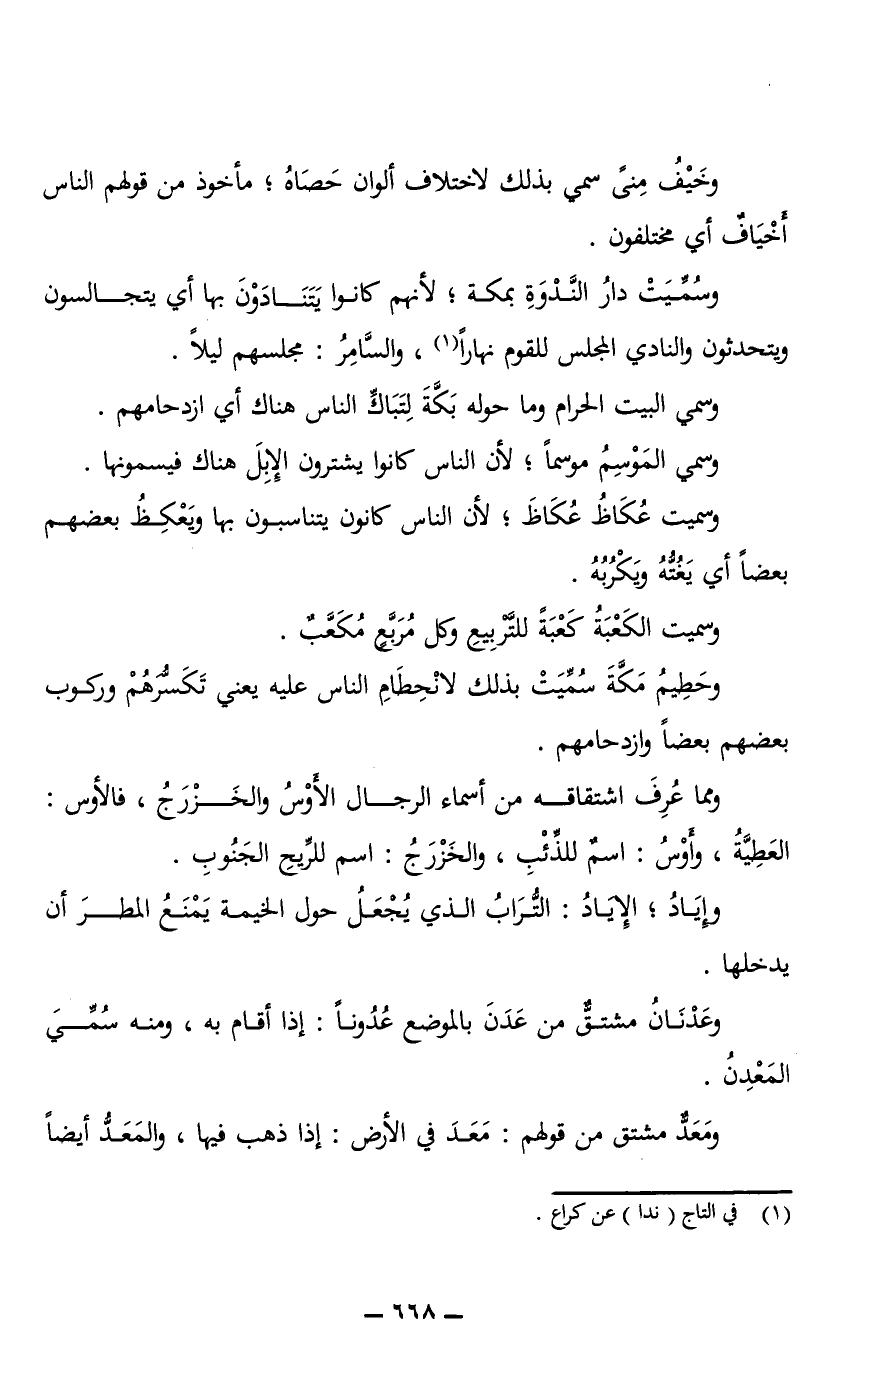 وخَيْفُ مِنىً سمي بذلك لاختلاف ألوان حَصَاهُ ؛ مأخوذ من قولهم الناس
أَخْيَافٌ أي مختلفون .
وسُمِّيَتْ دارُ النَّدْوَةِ بمكة ؛ لأنهم كانوا يَتَنَادَوْنَ بها أي يتجالسون
ويتحدثون والنادي المجلس للقوم نهاراً(١) ، والسَّامِرُ : مجلسهم ليلاً .
وسمي البيت الحرام وما حوله بَكَّةَ لِتَبَاكِّ الناس هناك أي ازدحامهم .
وسمي المَوْسِمُ موسماً ؛ لأن الناس كانوا يشترون الإِبِلَ هناك فيسمونها .
وسميت عُكَاظُ عُكَاظَ ؛ لأن الناس كانون يتناسبون بها ويَعْكِظُ بعضهم
بعضاً أي يَغُتُّهُ ويَكْرُبُهُ .
وسميت الكَعْبَةُ كَعْبَةً للتَّرْبِيعِ وكل مُرَبَّعٍ مُكَعَّبٌ .
وحَطِيمُ مَكَّةَ سُمِّيَتْ بذلك لانْحِطَامِ الناس عليه يعني تَكَسُّرَهُمْ وركوب
بعضهم بعضاً وازدحامهم .
ومما عُرِفَ اشتقاقه من أسماء الرجال الأَوْسُ والخَزْرَجُ ، فالأوس :
العَطِيَّةُ ، وأَوْسُ : اسمٌ للذِّئْبِ ، والخَزْرَجُ : اسم للرِّيحِ الجَنُوبِ .
وإِيَادُ ؛ الإِيَادُ : التُّرَابُ الذي يُجْعَلُ حول الخيمة يَمْنَعُ المطرَ أن
يدخلها .
وعَدْنَانُ مشتقٌّ من عَدَنَ بالموضع عُدُوناً : إذا أقام به ، ومنه سُمِّيَ
المَعْدِنُ .
ومَعَدٌّ مشتق من قولهم : مَعَدَ في الأرض : إذا ذهب فيها ، والمَعَدُّ أيضاً
(١) في التاج ( ندا ) عن كراع .
– ٦٦٨ –